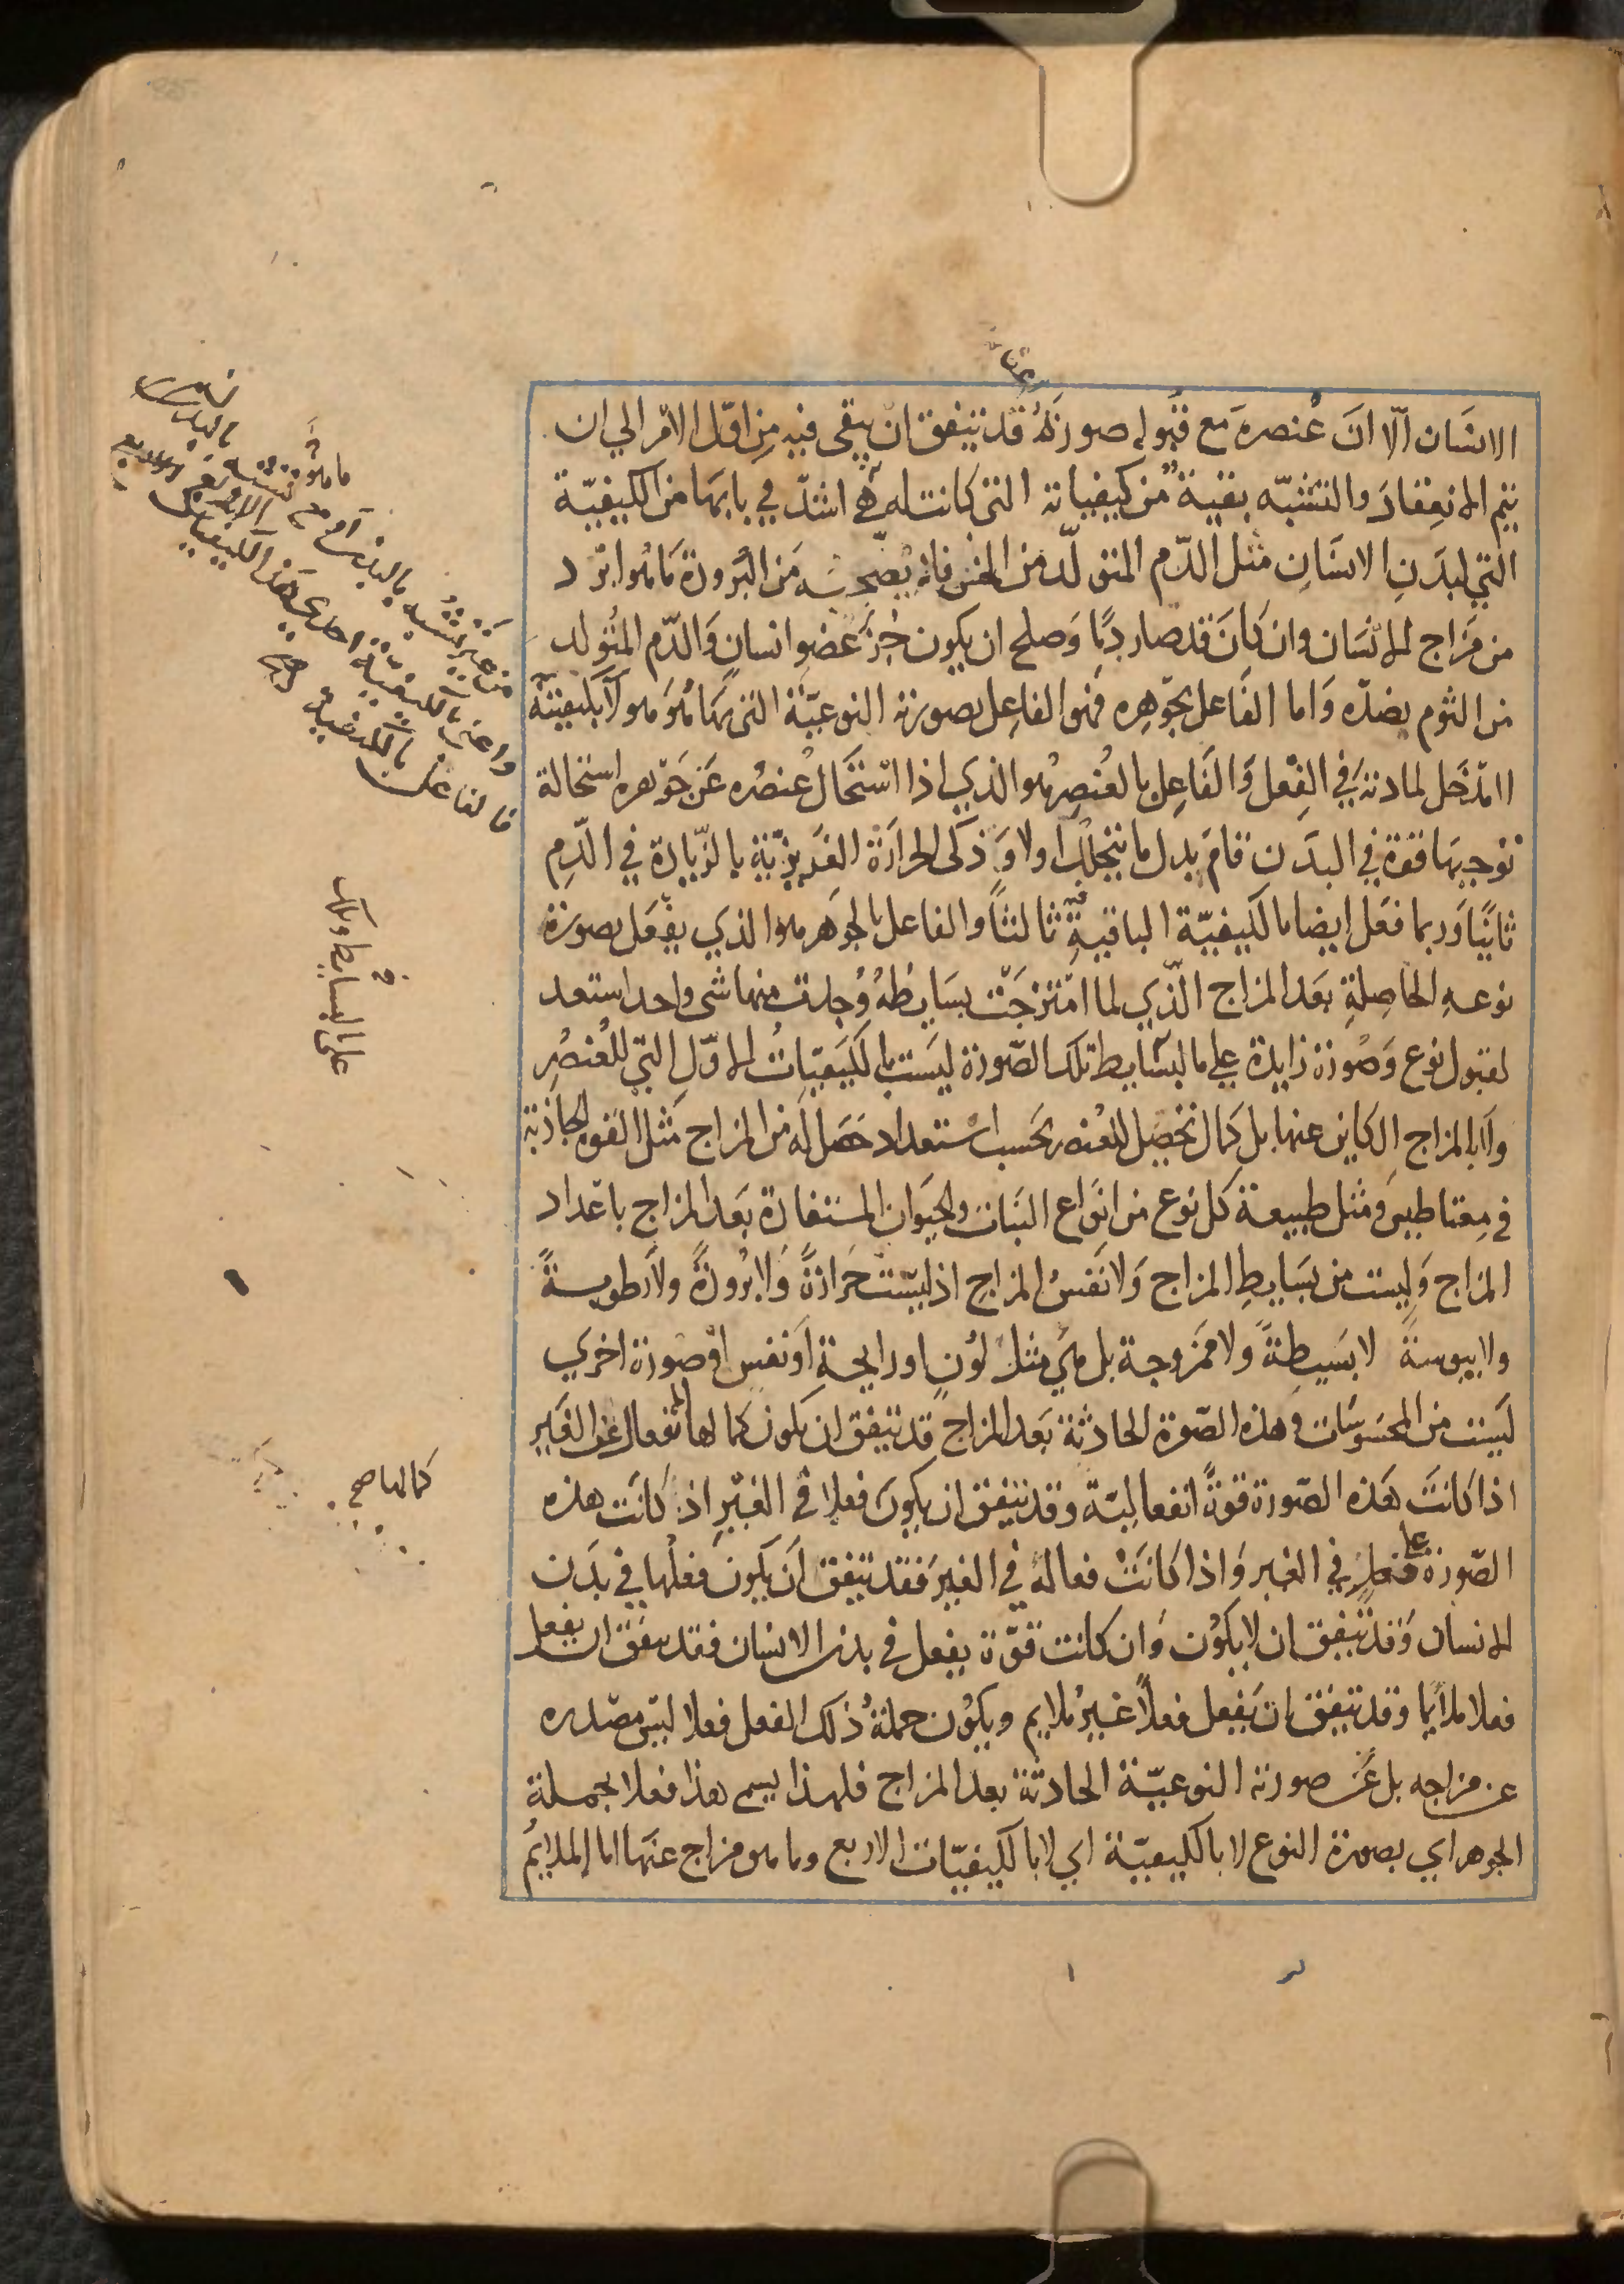 الانسان الّا انَ عُنصره مَع قبُوله صورتَهُ قد تتفق ان يبقى فيه مِن اوّل الامر الي ان
يتم الانعِقادَ والتشبّه بقية من كيفياته التى كانت له هي اشدّ في بابها من الكيفيّة
التي لبدَنِ الانسَانِ مثل الدّم المتولّد من الخس فانه يصحبه مَن البُرودة مَا هُوا برد
من مَزاج الانسَان وان كانَ قد صار دمًا وَصلح ان يكون جُزءَ عَضو انسان وَالدّم المتُولد
من الثوم بضدّه وَاما الفَاعل بجَوهِره فهو الفاعِل بصورته النوعيّة التى بهَا هُوَ هو لَا بكيفيتهٌ
لا مَدخَل لمادته في الفِعل وَالفَاعِل بالعُنصِر هو الذي اذا استَحَال عُنصُره عَن جَوهره استحالة
توجبها قوة في البدَن قامَ بدل ما يتحلل اولا وَذكى الحرارَة الغريزيّة بالزّيادة في الدّمِ
ثانيًا وَربما فعَل ايضا بالكيفيّة الباقيةِ ثالثًا والفاعل بالجوهر هوا الذي يفعَل بصورة
نوعهِ الحاصِلةِ بعَد المزاج الّذي لما امتزجَت بسَايطُهُ وُجدت منها شى واحد استعد
لقبول نوع وَصُورة زايدة علي ما لبسَايط تلك الصّورة ليسَت بالكيَفيّاتُ الاوَلِ التي للعُنصُرِ
ولَا بالمزاج الكاين عنها بل كمَال تحصيل للعُنصر بحَسب استعداد حَصَل لَه من المزاج مَثل القوه الجاذبة
في مِقناطيس وَمثل طبيعة كل نوع من انوَاع النبَات والحيَوان المستفادة بعَد المزاج باعداد
المزاج وَليست من بسَايطِ المزاج وَلا نَفسُ المزاجِ اذ ليسَت حَرارَةً وَلا بُرُودَةً ولَا رطوبةً
ولا يبوسةً لا بسَيطةً ولا ممَزوجة بل هي مثل لوُن او رايحة اَو نفس اوَ صورة اخرَي
ليَست من المحسَوسَات وهذه الصّورة الحادثة بعَد المزاج قد يتفق ان يكون كمالها الانفعال عَن الغَير
اذا كانتَ هَذه الصّورة قوةً انفعاليّة وقد يتفق ان يكونَ فعلا في الغيَرِ اذا كانَت هذه
الصّورة علي فعل في الغير وَاذا كانَتْ فعالة في الغير فقد يتفق اَن يكَونَ فعلُها في بدَن
الانسان وَقد يتفق ان لا يكوُن وَان كانت قوّة يفعل في بدن الانسان فقد يتفق ان يفعل
فعلا ملايما وقد يتفَق ان يفعل فعلًا غَير ملايم ويكوُن جملةُ ذلك الفعل فعلا ليس مصَدره
عن مزاجه بل عَن صورته النوعيّة الحادثة بعد المزاج فلهذا يسمى هذا فعلا بجملة
الجوهر اي بصورة النوع لا بالكيفيّة اي لا بالكيفيّات الاربع وما هو مزاج عنَها اما الملايمُ
من غير تشبه بالبدن
واعني بالكيفية احدي هذه الكيفيات
فالفاعل بالكيفية
على البسايط وتلك
كمالها صح